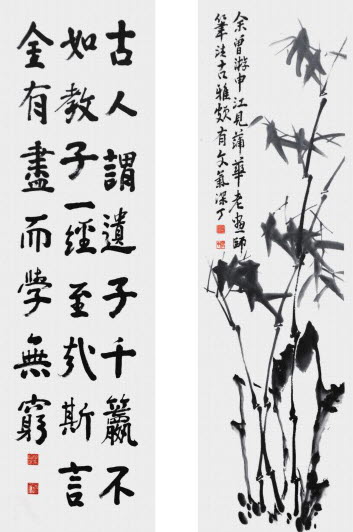 古人謂遺子千籯不
如教子一經至哉斯言
金有盡而學無窮
余曾游申江見蒲華老畫師
筆法古雅頗有文氣深丁